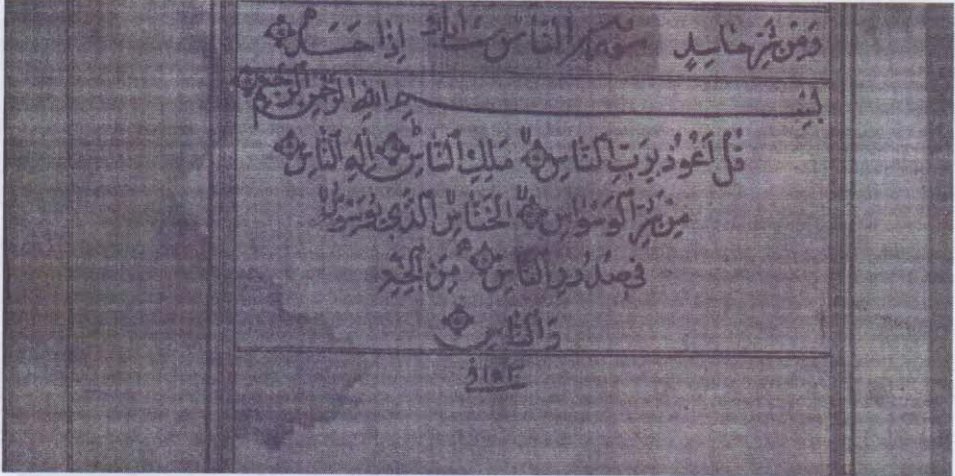 وَمِن شَرِّ حَاسِدٍ سورة النَّاس ست ايات إِذَا حَسَدَ
بِسْمِ اللهِ الرَّحْمٰنِ الرَّحِيمِ
قُلْ أَعُوذُ بِرَبِّ ٱلنَّاسِ مَلِكِ ٱلنَّاسِ إِلٰهِ ٱلنَّاسِ
مِن شَرِّ ٱلْوَسْوَاسِ ٱلْخَنَّاسِ ٱلَّذِي يُوَسْوِسُ
فِي صُدُورِ ٱلنَّاسِ مِنَ ٱلْجِنَّةِ
وَٱلنَّاسِ